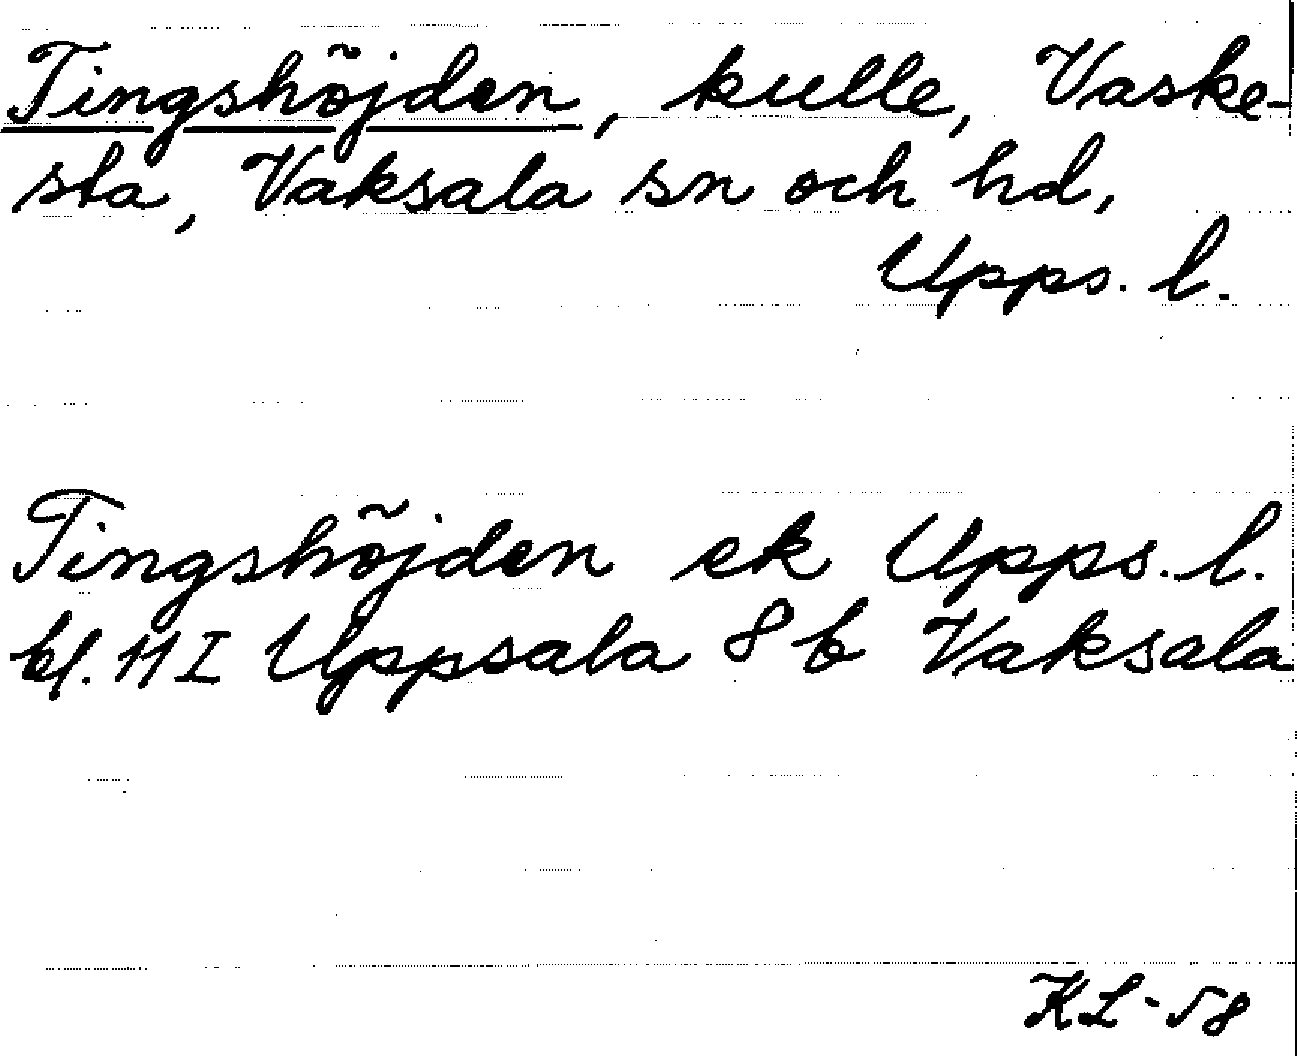 Tingshöjden, kulle, Vaske-
sta, Vaksala sn och hd,
Upps. l.
Tingshöjden ek Upps. l.
bl. 11 I Uppsala 8 b Vaksala
KL-58